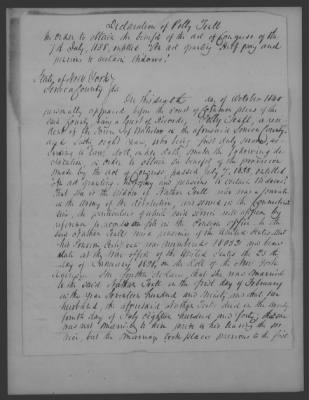 Declaration of Polly Teall
In order to obtain the benefit of the act of Congress of the
7th July, 1838, entitled "An act granting half pay and
pensions to certain widows."
State of New York
Seneca County ss.
On this day of October 1840
personally appeared before the court of Common pleas of the
said County being a Court of Record, Polly Teall, a resi-
dent of the Town of Waterloo in the aforesaid Seneca County,
aged sixty eight years, who being first duly sworn, ac-
cording to law, doth, on her oath, make the following de-
claration, in order to obtain the benefit of the provision
made by the act of Congress passed July 7, 1838, entitled
"An act granting half pay and pensions to certain widows."
That she is the widow of Nathan Teall who was a private
in the army of the Revolution, and served in the Connecticut
line, the particulars of which said service will appear by
reference to on file in the Pension office. That the
said Nathan Teall was a pensioner of the United States, that
his Pension Certificate was numbered and bears
date at the War office of the United States the 25th
day of on the Roll of the New York
Agency. She further declares that she was married
to the said Nathan Teall on the first day of February
in the year seventeen hundred and ninety, and that her
husband, the aforesaid Nathan Teall died on the twenty
fourth day of July eighteen hundred and forty; that she
was not married to him prior to his leaving the ser-
vice, but the marriage took place previous to the first